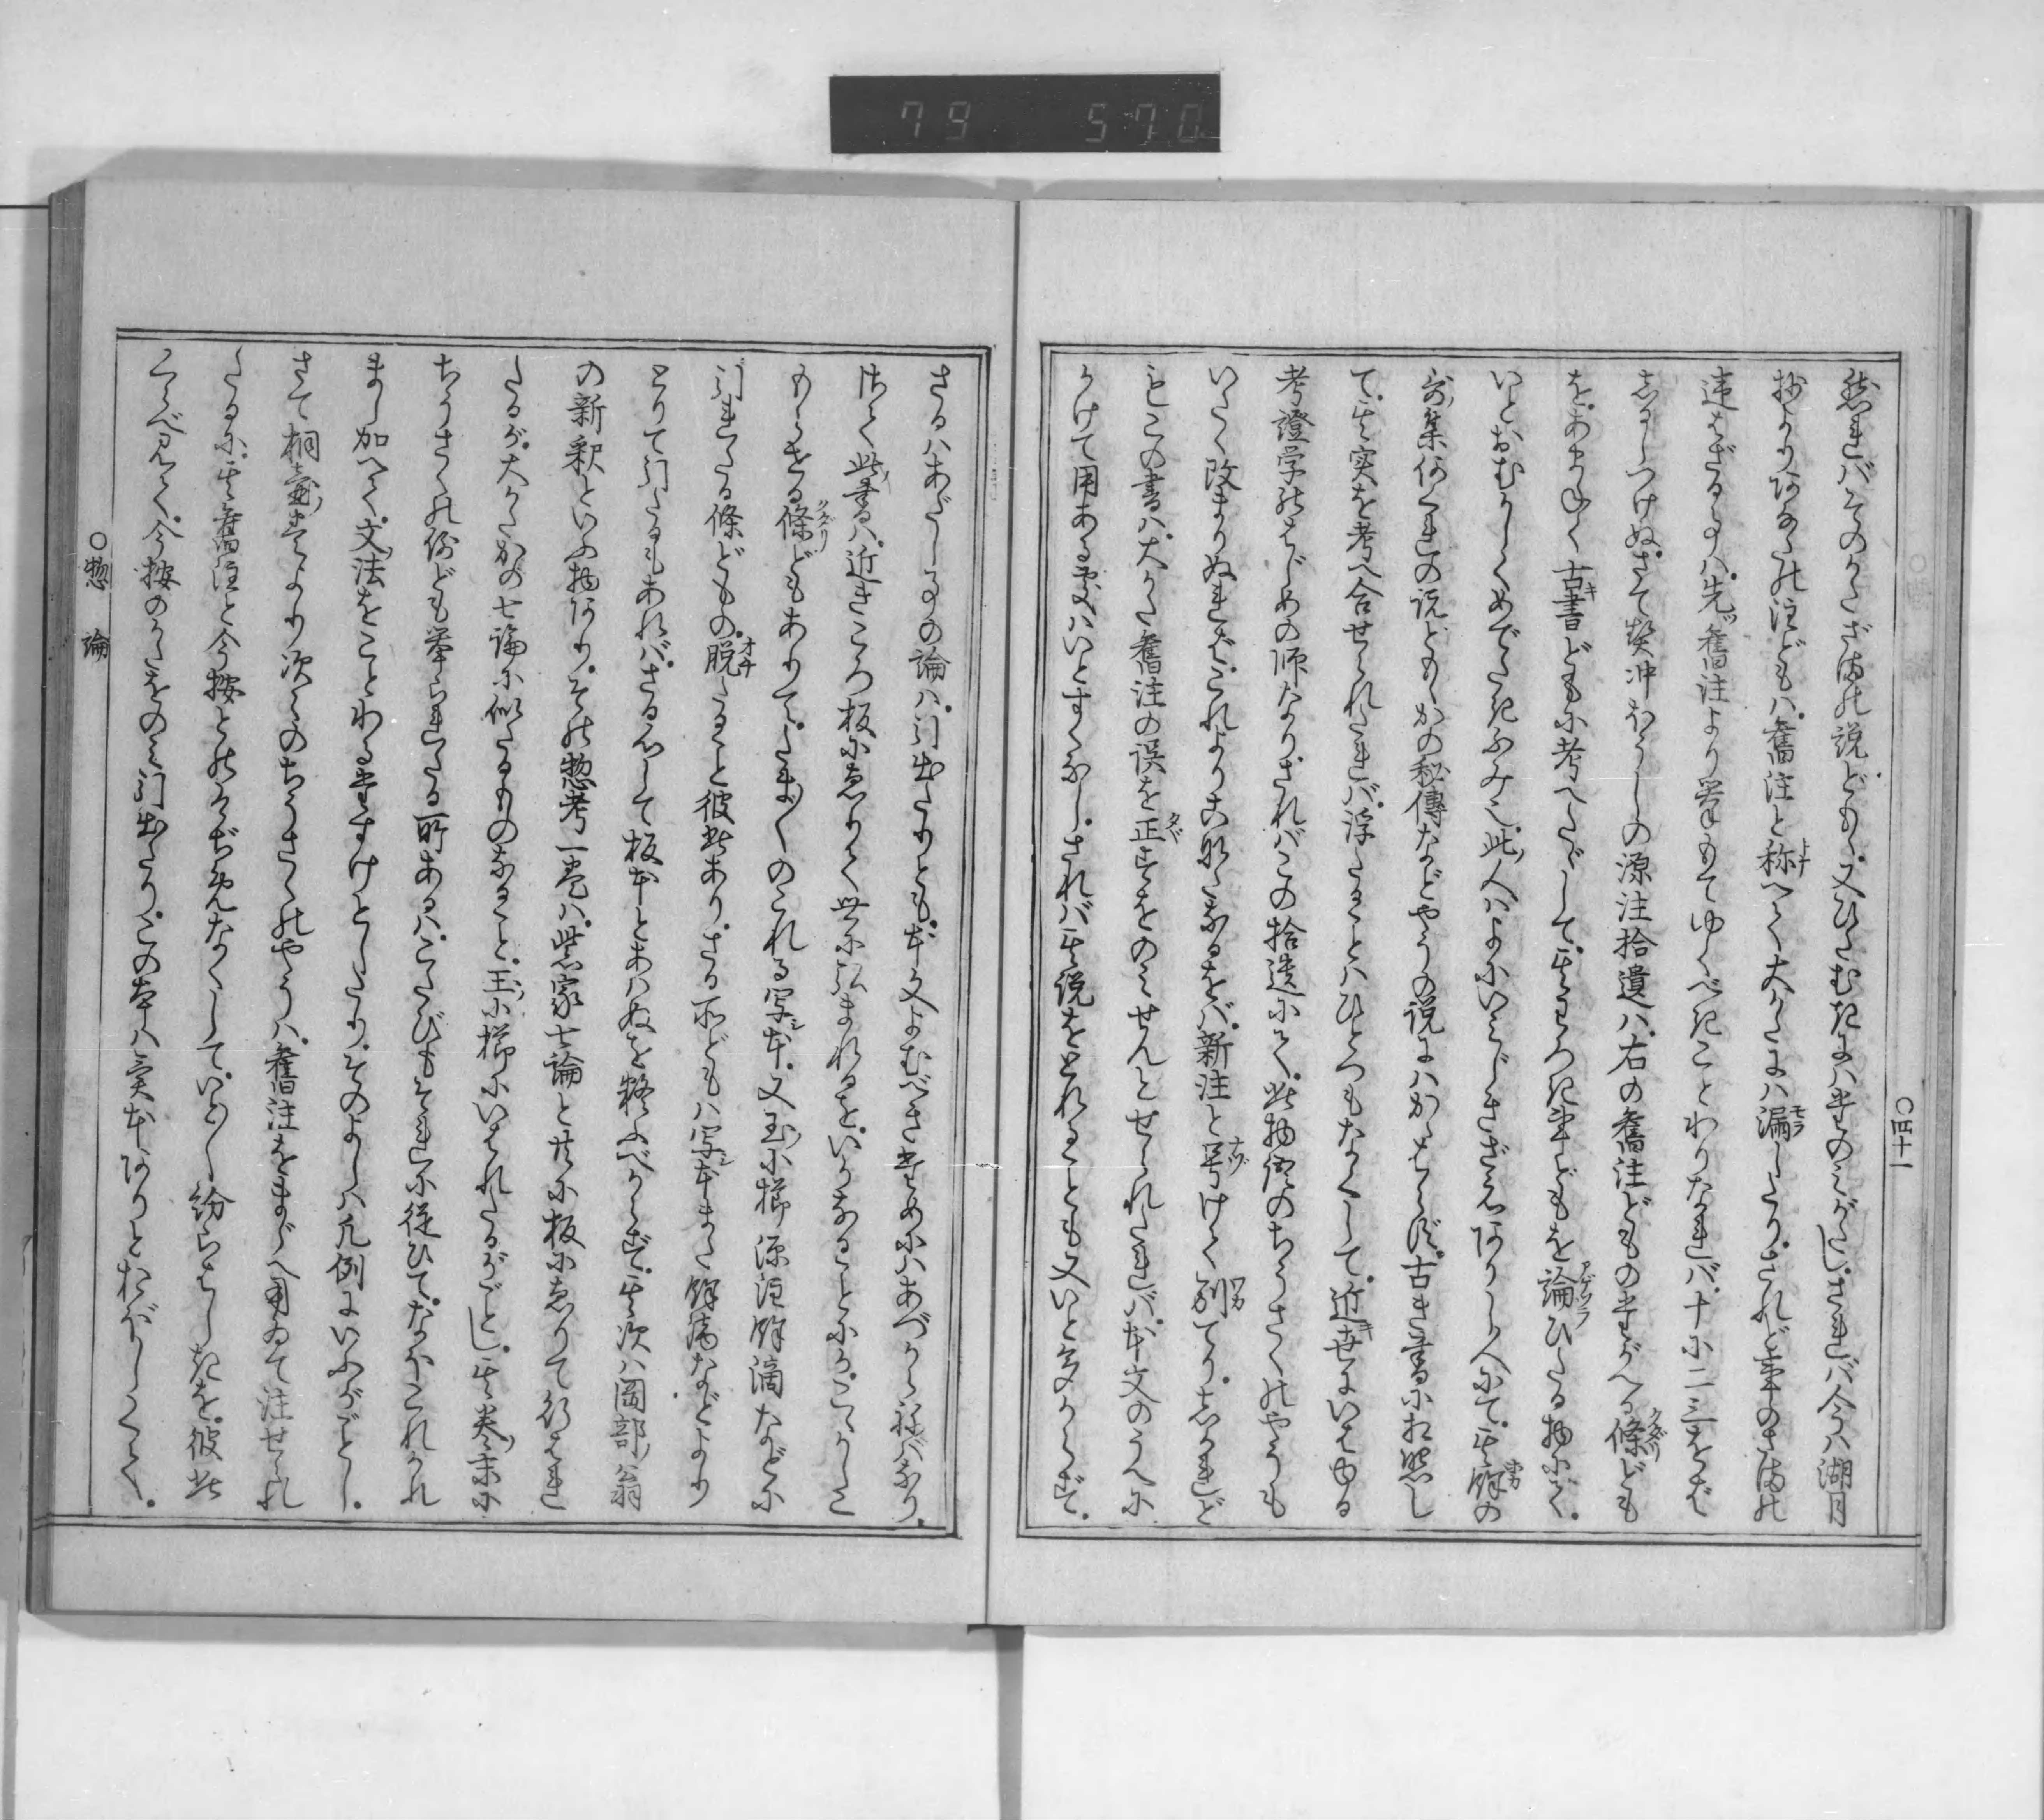 ○四十一
然れバそのかたざまの説ども、又ひたむきにハたのミがたし。されバ今ハ湖月
抄よりあなたの注どもハ、舊注と称へて大かたにハ漏したり。されど事のさまの
違はざる事ハ、先舊注より挙もてゆくべきことわりなれバ、十に二三をば
しるしつけぬ。さて契沖ほうしの源注拾遺ハ、右の舊注どものたがへる條ども
を、あまねく古書どもに考へたゞして、其よろづの事どもを論ひたる物にて、
いとおむかしくめでたきふみ也。此人ハよにいミじきざえありし人にて、其餘の
家集何くれの説ども、かの秘傳などやうの説にハかゝはらず。古き書に相照し
て、其実を考へ合せられたれバ、浮たることハひとつもなくして、近世にいはゆる
考證学のはじめの師なり。されバこの拾遺にて、此物語のちうさくのやうも
いたく改まりぬれば、これよりこなたなるをバ、新注と号けて別てり。しかれど
もこの書ハ、大かた舊注の誤を正すをのミせんとせられたれバ、本文のうへに
かけて用ある事ハいとすくなし。されバ其説をとれることも又いと多からず。
さるハあだし事の論ハ、引出たりとも、本文よむべきためにハあづからねバなり。
はた此書ハ、近きころ板にゑりて世に弘まれるを、いかなることにか、こゝかしこ
もらせる條どもありて、たま〳〵のこれる写本、又玉小櫛源注餘滴などに
引れたる條どもの、脱たること彼此あり。さる所どもハ写本また餘滴などより
とりて引たるもあれバ、さる心して板本とあハぬを疑ふべからず。其次ハ岡部翁
の新釈といふ物あり。その惣考一巻ハ、紫家七論と共に板にゑりて行はれ
たるが、大かたかの七論に似たるものなること、玉小櫛にいはれたるがごとし。其巻末に
ちうさくの例ども挙られたる所あるハ、こたびもそれに従ひて、なほこれかれ
まし加へて、文法をことわるたすけとしたり。そのよしハ凡例にいふがごとし。
さて桐壺巻より次々のちうさくのやうハ、舊注をまじへ用ゐて注せられ
たるに、其舊注と今按とのけぢめなくして、いと〳〵紛らはしきを、彼此
くらべ見て、今按のかたをのミ引出たり。この本ハ寫本なりとおぼしくて、
○惣論
79 570